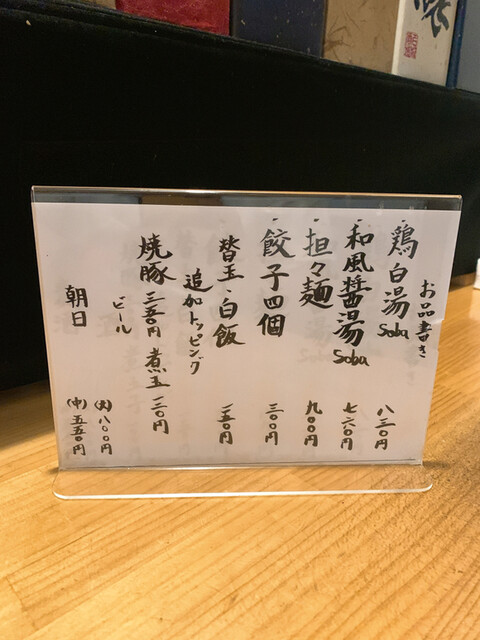 お品書き
・鶏白湯Soba 八三〇円
・和風醤湯Soba 七六〇円
・担々麺 九〇〇円
・餃子四個 三〇〇円
・替玉・白飯 一五〇円
追加トッピング
焼豚三五〇円 煮玉一二〇円
ビール
朝日 (大)八〇〇円
(中)五五〇円